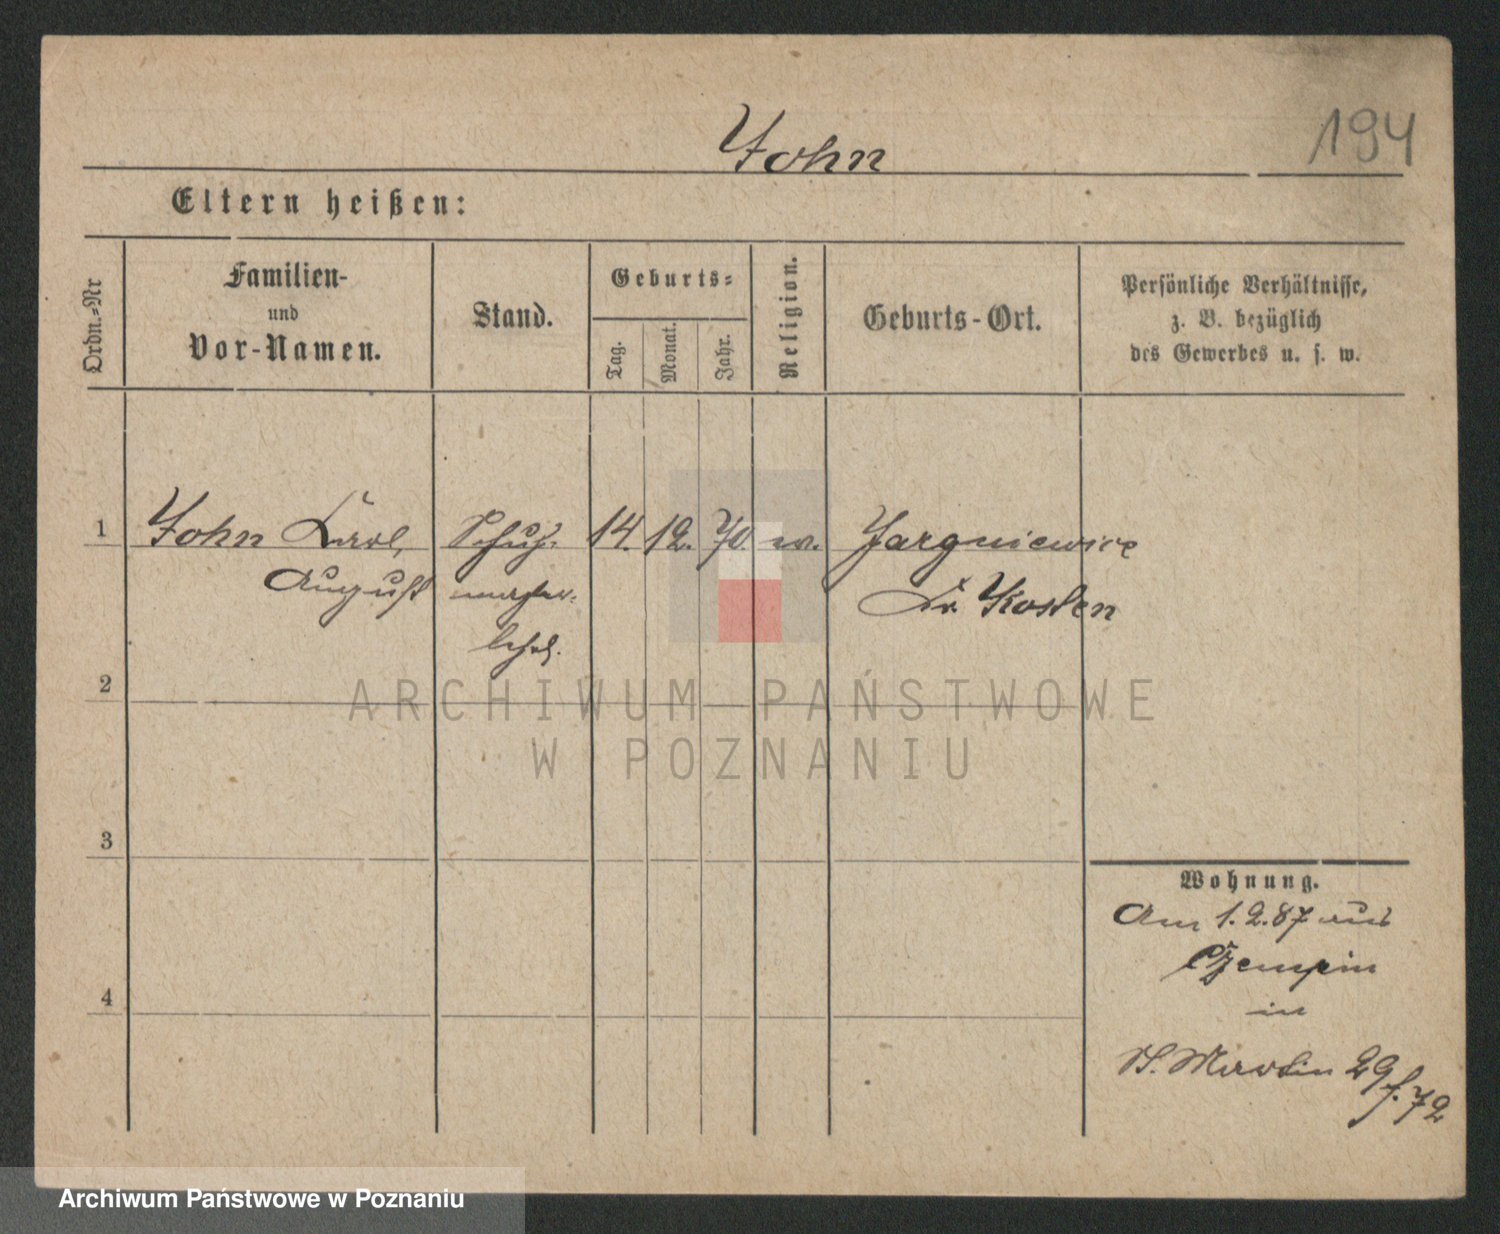 194
John
Eltern heißen:
Ordn.-Nr
Familien-
und
Vor-Namen.
Stand.
Geburts-
Tag.
Monat.
Jahr.
Religion.
Geburts-Ort.
Persönliche Verhältnisse,
z. B. bezüglich
des Gewerbes u. s. w.
1
John Karl,
August
Schuh-
macher-
lehrl.
14. 12. 70.
Jargniewice
Kr. Kosten
2
3
4
Wohnung.
Am 1.2.87 aus
Czempin
in
St. Martin 29
f. 72
ARCHIWUM PAŃSTWOWE
W POZNANIU
Archiwum Państwowe w Poznaniu